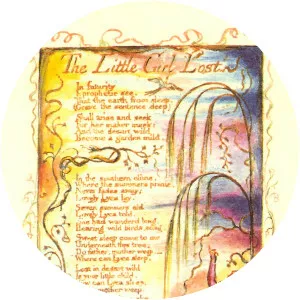 The Little Girl Lost
In futurity
I prophetic see,
That the earth from sleep,
(Grave the sentence deep)
Shall arise and seek
For her maker meek:
And the desart wild
Become a garden mild.
In the southern clime,
Where the summers prime,
Never fades away;
Lovely Lyca lay.
Seven summers old
Lovely Lyca told,
She had wanderd long,
Hearing wild birds song.
Sweet sleep come to me
Underneath this tree;
Do father, mother weep.
Where can Lyca sleep.
Lost in desart wild
Is your little child.
can Lyca sleep,
mother weep.